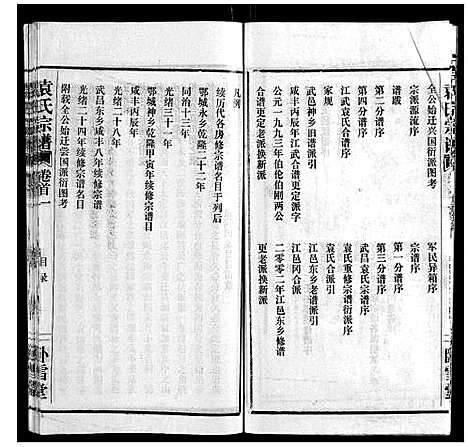 全公始迁兴国衍派图考
宗派源流序
谱跋
第二分谱序
第四分谱序
江武袁氏合谱序
武邑神乡旧谱派引
公元一九九三年伯伦伯刚两公
合谱更定老派换新派
军民异箱序
宗谱序
第一分谱序
第三分谱序
武昌袁氏谱序
袁氏重修宗谱衍派序
袁氏合派引
江邑东乡老谱派引
江邑冈合派引
二零零二年江邑东乡修谱
更老派换新派
凡例
续历代各房修宗谱名目于列后
鄂城永乡乾隆二十二年
同治十三年
光绪三十一年
鄂城神乡乾隆甲寅年续修宗谱名目
咸丰丙辰年
光绪二十八年
武昌东乡咸丰八年续修宗谱名目
光绪二十四年
附叙全公始迁崇国派衍图考
袁氏宗谱
卷首一
目录
卧雪堂